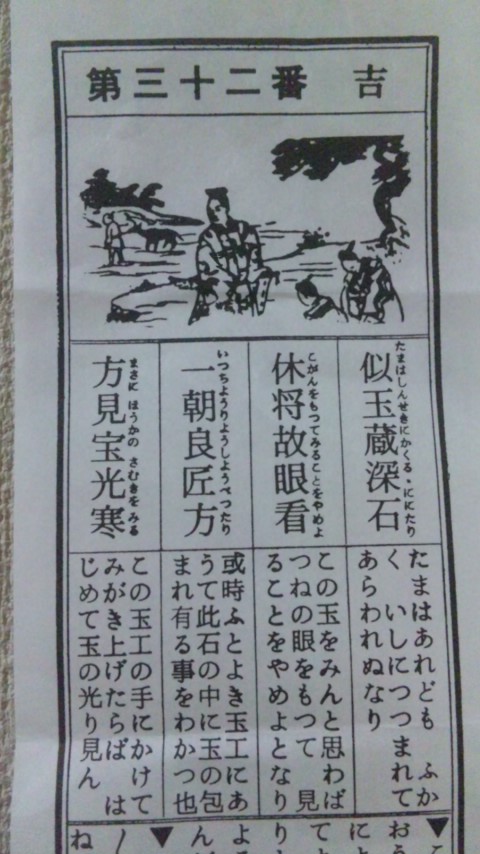 第三十二番 吉
たまはしんせきにかくる。ににたり
似玉蔵深石
こがんをもつてみることをやめよ
休将故眼看
いつちようりようしようべつたり
一朝良匠方
まさに ほうかの さむきを みる
方見宝光寒
たまはあれども ふか
く いしにつつ まれて
あらわれぬなり
この玉をみんと思わば
つねの眼をもつて 見
ることをやめよとなり
或時ふとよき玉工にあ
うて此石の中に玉の包
まれ有る事をわかつ也
この玉工の手にかけて
みがき上げたらば は
じめて玉の光り見ん
▼
おう
にと
▼
ね